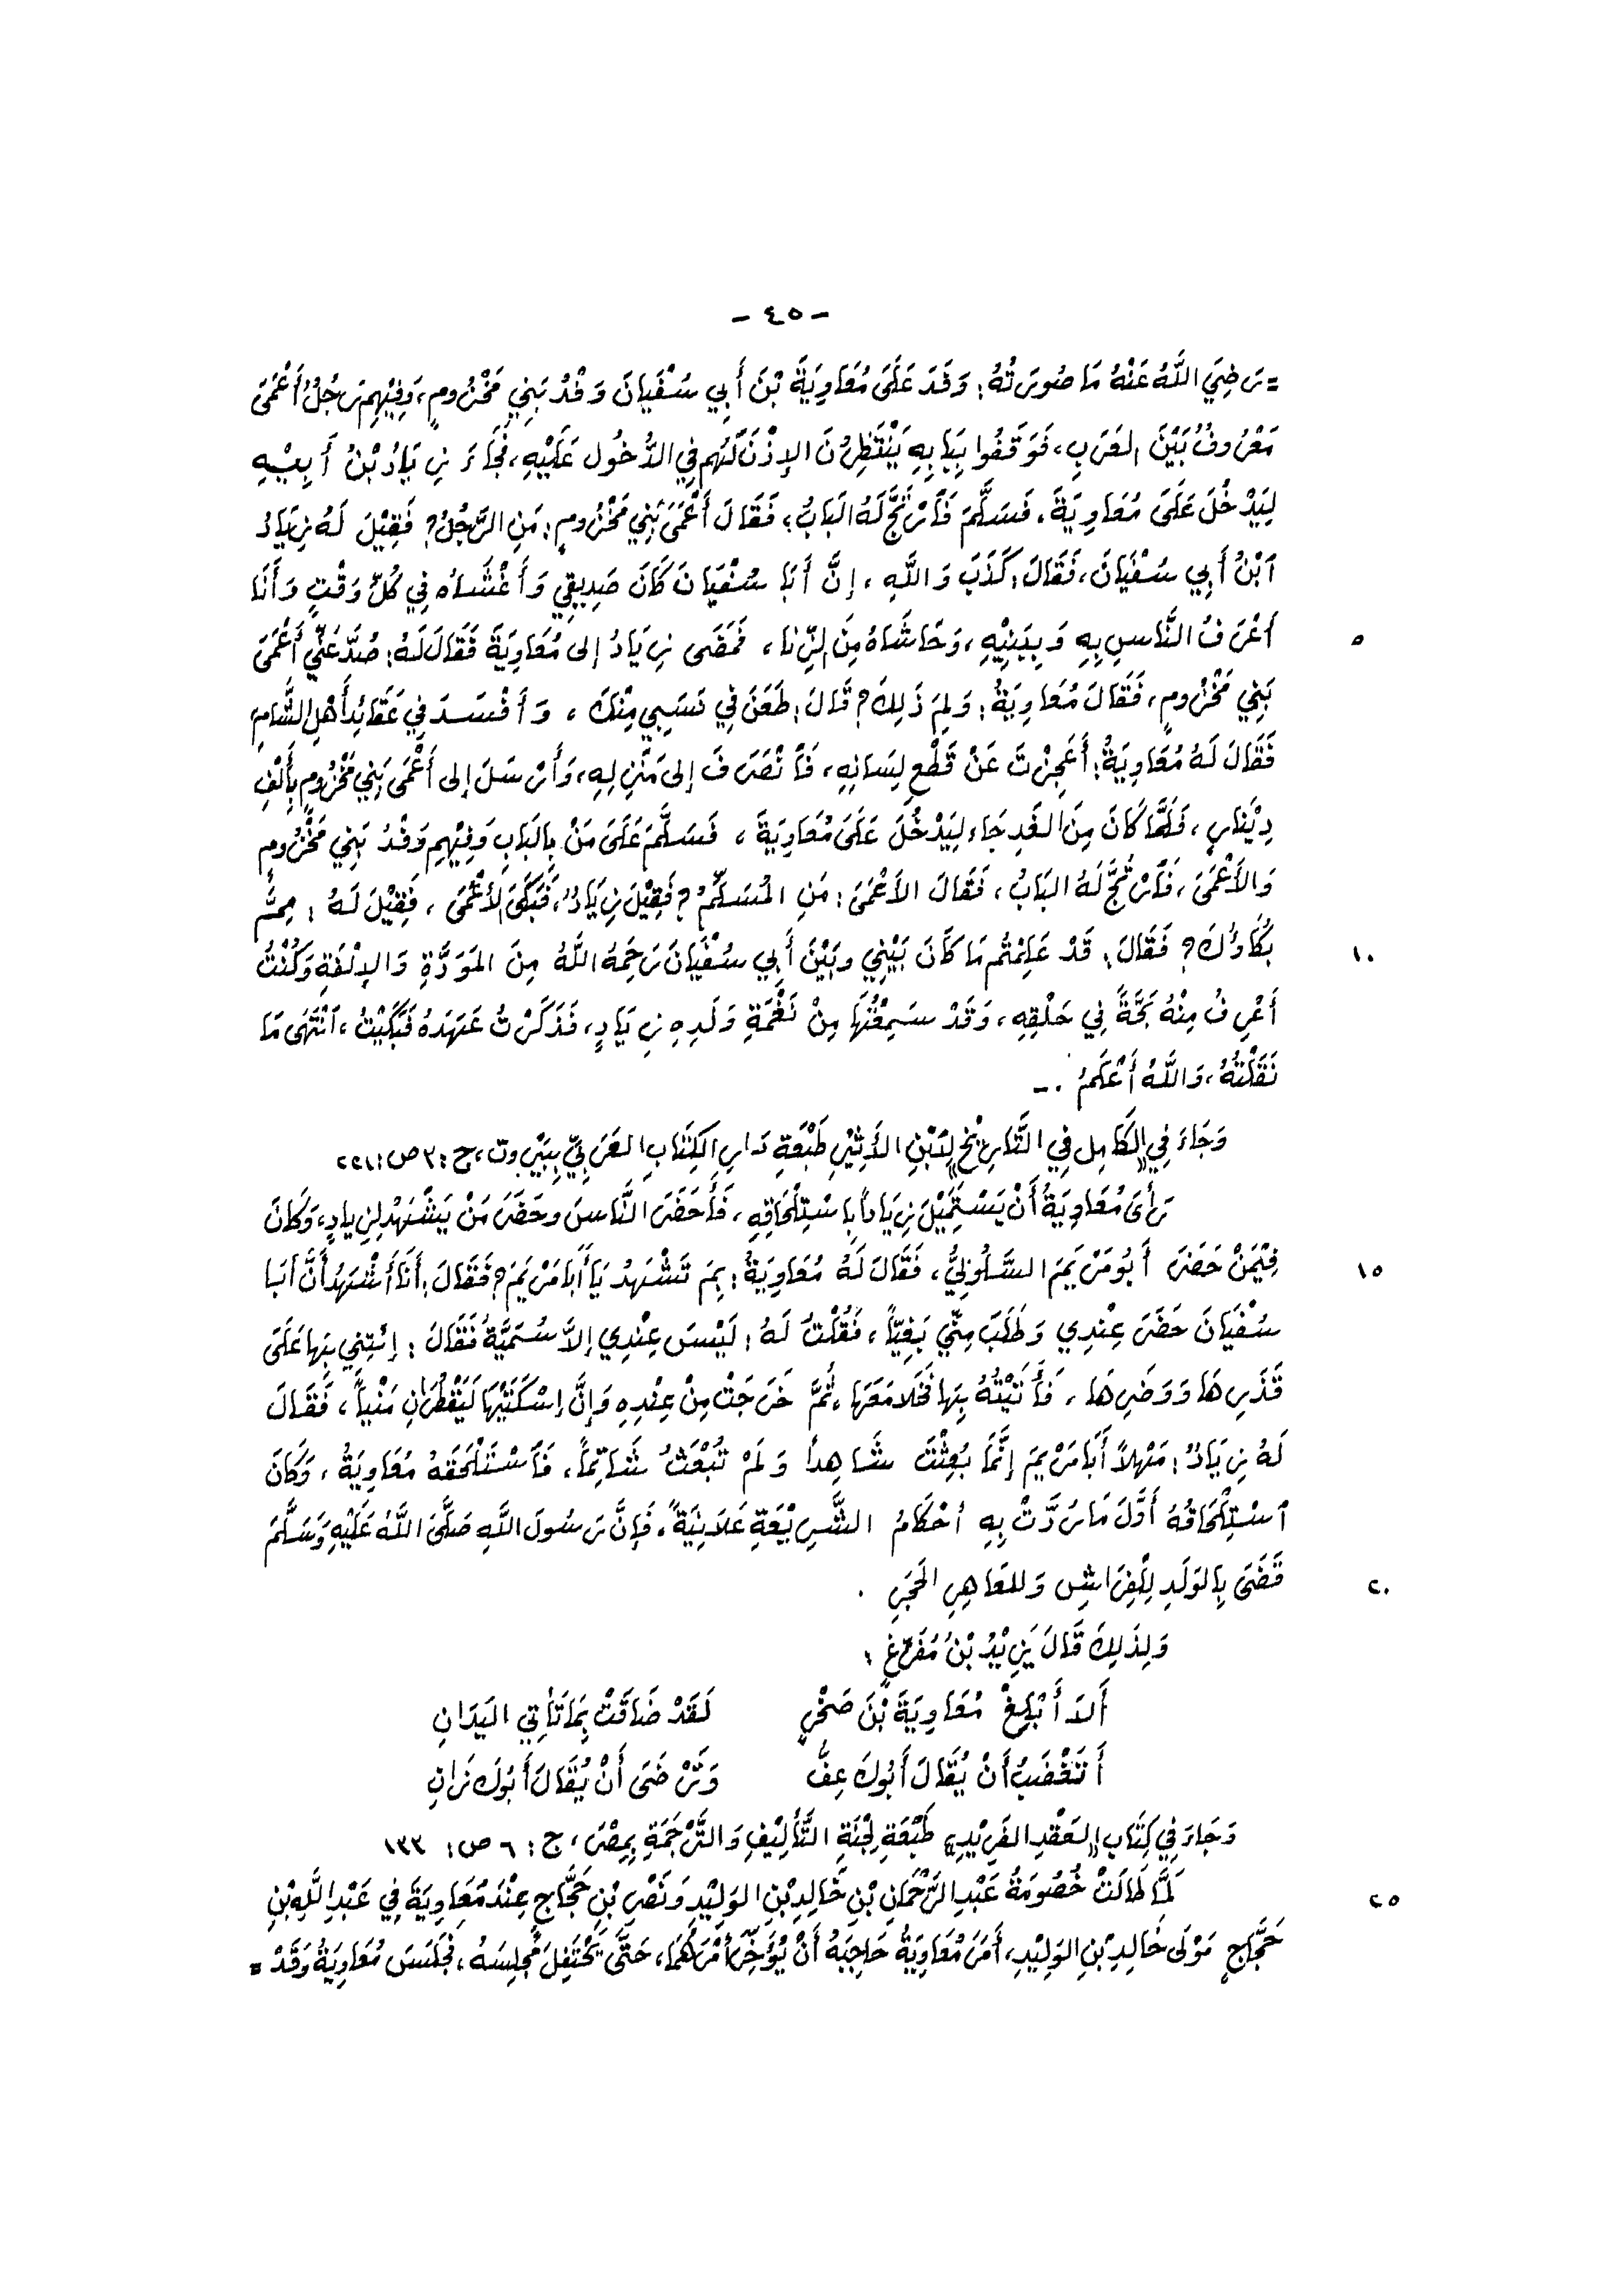 - ٤٥ -
= رَضِيَ اللَّهُ عَنْهُ مَا صُورَتُهُ: وَفَدَ عَلَى مُعَاوِيَةَ بْنِ أَبِي سُفْيَانَ وَفْدُ بَنِي مَخْزُومٍ، وَفِيْهِم رَجُلٌ أَعْمَى
مَعْرُوفٌ بَيْنَ العَرَبِ، فَوَقَفُوا بِبَابِهِ يَنْتَظِرُونَ الإِذْنَ لَهُم فِي الدُّخُولِ عَلَيْهِ، فَجَاءَ زِيَادُ بْنُ أَبِيْهِ
لِيَدْخُلَ عَلَى مُعَاوِيَةَ، فَسَلَّمَ فَارْتَجَّ لَهُ البَابُ، فَقَالَ أَعْمَى بَنِي مَخْزُومٍ: مَنِ الرَّجُلُ؟ فَقِيْلَ لَهُ زِيَادُ
ابْنُ أَبِي سُفْيَانَ، فَقَالَ: كَذَبَ وَاللَّهِ، إِنَّ أَبَا سُفْيَانَ كَانَ صَدِيقِي وَأَغْشَاهُ فِي كُلِّ وَقْتٍ وَأَنَا
٥ أَعْرَفُ النَّاسِ بِهِ وَبِبَيْتِهِ، وَحَاشَاهُ مِنَ الزِّنا، فَمَضَى زِيَادُ إلى مُعَاوِيَةَ فَقَالَ لَهُ: صُدَّ عَنِّي أَعْمَى
بَنِي مَخْزُومٍ، فَقَالَ مُعَاوِيَةُ: وَلِمَ ذَلِكَ؟ قَالَ: طَعَنَ فِي نَسَبِي مِنْكَ، وَأَفْسَدَ فِي عَقَائِدِ أَهْلِ الشَّامِ،
فَقَالَ لَهُ مُعَاوِيَةُ: أَعَجِزْتَ عَنْ قَطْعِ لِسَانِهِ، فَانْصَرَفَ إلى مَنْزِلِهِ، وَأَرْسَلَ إلى أَعْمَى بَنِي مَخْزُومٍ بِأَلْفِ
دِيْنَارٍ، فَلَمَّا كَانَ مِنَ الغَدِ جَاءَ لِيَدْخُلَ عَلَى مُعَاوِيَةَ، فَسَلَّمَ عَلَى مَنْ بِالبَابِ وَفِيْهِم وَفْدُ بَنِي مَخْزُومٍ
وَالأَعْمَى، فَارْتَجَّ لَهُ البَابُ، فَقَالَ الأَعْمَى: مَنِ المُسَلِّمُ؟ فَقِيْلَ زِيَادُ، فَبَكَى الأَعْمَى، فَقِيْلَ لَهُ: مِمَّ
١٠ بُكَاؤُكَ؟ فَقَالَ: قَدْ عَلِمْتُم مَا كَانَ بَيْنِي وبَيْنَ أَبِي سُفْيَانَ رَحِمَهُ اللَّهُ مِنَ المَوَدَّةِ وَالإِلْفَةِ وَكُنْتُ
أَعْرِفُ مِنْهُ بَحَّةً فِي حَلْقِهِ، وَقَدْ سَمِعْتُهَا مِنْ نَغْمَةِ وَلَدِهِ زِيَادٍ، فَذَكَرْتُ عَهدَهُ فَبَكَيْتُ، انْتَهَى مَا
نَقَلْتُهُ، وَاللَّهُ أَعْلَمُ. -
وَجَاءَ فِي «الكَامِلِ فِي التَّارِيْخِ» لِابْنِ الأَثِيْرِ طَبْعَةِ دَارِ الكِتَابِ العَرَبِيِّ بِبَيْرُوت، ج: ٣ ص: ٢٢١
رَأَى مُعَاوِيَةُ أَنْ يَسْتَمِيْلَ زِيَاداً بِاسْتِلْحَاقِهِ، فَأَحْضَرَ النَّاسَ وحَضَرَ مَنْ يَشْهَدُ لِزِيادٍ، وَكَانَ
١٥ فِيْمَنْ حَضَرَ أَبُو مَرْيَمَ السَّلُولِيُّ، فَقَالَ لَهُ مُعَاوِيَةُ: بِمَ تَشْهَدُ يَا أَبَا مَرْيَمَ؟ فَقَالَ: أَنَا أَشْهَدُ أَنَّ أَبَا
سُفْيَانَ حَضَرَ عِنْدِي وَطَلَبَ مِنِّي بَغِيّاً، فَقُلْتُ لَهُ: لَيْسَ عِنْدِي إلاَّ سُمَيَّةُ فَقَالَ: إئْتِنِي بِهَا عَلَى
قَذَرِهَا وَوَضَرِهَا، فَأَتَيْتُهُ بِهَا فَخَلا مَعَهَا، ثُمَّ خَرَجَتْ مِنْ عِنْدِهِ وَإِنَّ إسْكَتَيْهَا لَيَقْطُرَانِ مَنْياً، فَقَالَ
لَهُ زِيَادُ: مَهْلاً أَبَا مَرْيَمَ إنَّمَا بُعِثْتَ شَاهِداً وَلَمْ تُبْعَثْ شَاتِماً، فَاسْتَلْحَقَهُ مُعَاوِيَةُ، وَكَانَ
اسْتِلْحَاقُهُ أَوَّلَ مَا رُدَّتْ بِهِ أحْكَامُ الشَّرِيْعَةِ عَلاَنِيَةً، فَإِنَّ رَسُولَ اللَّهِ صَلَّى اللَّهُ عَلَيْهِ وَسَلَّمَ
٢٠ قَضَى بِالوَلَدِ لِلْفِرَاشِ وَللعَاهِرِ الحَجَرِ .
وَلِذَلِكَ قَالَ يَزِيْدُ بْنُ مُفَرِّغٍ:
أَلاَ أَبْلِغْ مُعَاوِيَةَ بْنَ صَخْرٍ لَقَدْ ضَاقَتْ بِمَا تَأتِي اليَدَانِ
أَتَغْضَبُ أَنْ يُقَالَ أَبُوكَ عِفٌّ وَتَرْضَى أَنْ يُقَالَ أَبُوكَ زَانِ
وَجَاءَ فِي كِتَابِ «العِقْدِ الفَرِيْدِ» طَبْعَةِ لِجْنَةِ التَّأْلِيْفِ وَالتَّرْجَمَةِ بِمِصْرَ، ج: ٦ ص: ١٣٣
٢٥ لَمَّا طَالَتْ خُصُومَةُ عَبْدِ الرَّحْمَانِ بْنِ خَالِدِ بْنِ الوَلِيْدِ وَنَصْرِ بْنِ حَجَّاجٍ عِنْدَ مُعَاوِيَةَ فِي عَبْدِ اللَّهِ بْنِ
حَجَّاجٍ مَوْلَى خَالِدِ بْنِ الوَلِيْدِ، أَمَرَ مُعَاوِيَةُ حَاجِبَهُ أَنْ يُؤَخِّرَ أَمْرَهُمَا، حَتَّى يَحْتَفِلَ مَجْلِسَهُ، فَجَلَسَ مُعَاوِيَةُ وَقَدْ =